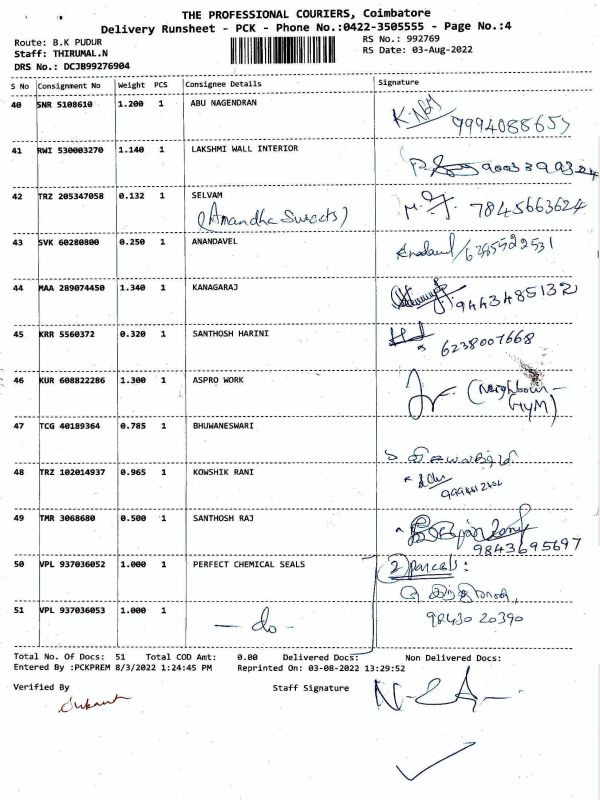 THE PROFESSIONAL COURIERS, Coimbatore
Delivery Runsheet - PCK - Phone No.:0422-3505555 - Page No.:4
Route: B.K PUDUR
RS No.: 992769
Staff: THIRUMAL.N
RS Date: 03-Aug-2022
DRS No.: DCJB99276904
S No Consignment No Weight PCS Consignee Details Signature
40 SNR 5108610 1.200 1 ABU NAGENDRAN
41 RWI 530003270 1.140 1 LAKSHMI WALL INTERIOR
42 TRZ 205347058 0.132 1 SELVAM 7845663624
(Anandha Sweets)
43 SVK 60280800 0.250 1 ANANDAVEL
44 MAA 289074450 1.340 1 KANAGARAJ 9443485132
45 KRR 5560372 0.320 1 SANTHOSH HARINI
6238007668
46 KUR 608822286 1.300 1 ASPRO WORK (Neighbour-
GYM)
47 TCG 40189364 0.785 1 BHUWANESWARI
48 TRZ 102014937 0.965 1 KOWSHIK RANI
49 TMR 3068680 0.500 1 SANTHOSH RAJ
9843695697
50 VPL 937036052 1.000 1 PERFECT CHEMICAL SEALS 2 parcels:
51 VPL 937036053 1.000 1
- do - 98430 20390
Total No. Of Docs: 51 Total COD Amt: 0.00 Delivered Docs: Non Delivered Docs:
Entered By :PCKPREM 8/3/2022 1:24:45 PM Reprinted On: 03-08-2022 13:29:52
Verified By Staff Signature